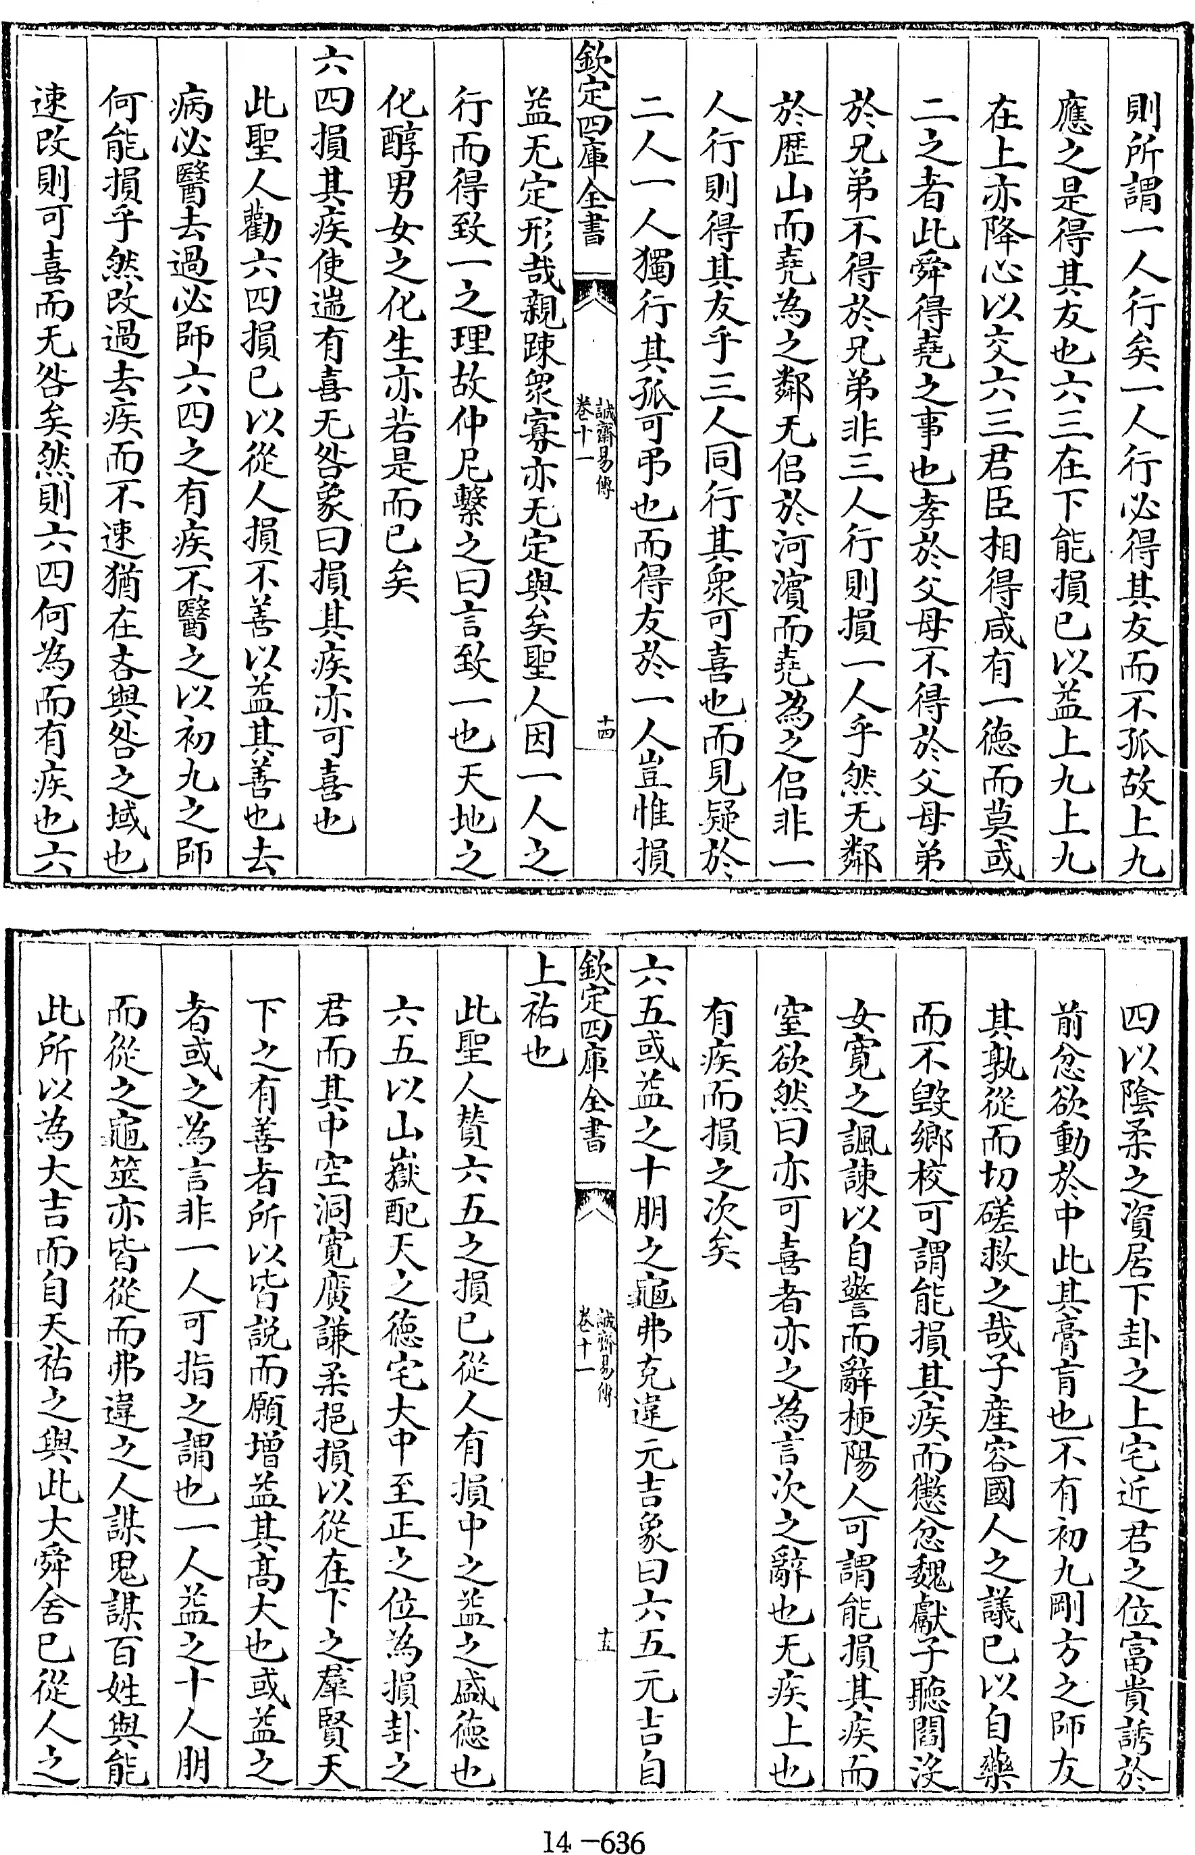 則所謂一人行矣一人行必得其友而不孤故上九
應之是得其友也六三在下能損已以益上九上九
在上亦降心以交六三君臣相得咸有一德而莫或
二之者此舜得堯之事也孝於父母不得於父母弟
於兄弟不得於兄弟非三人行則損一人乎然无鄰
於歴山而堯為之鄰无侣於河濱而堯為之侣非一
人行則得其友乎三人同行其衆可喜也而見疑於
二人一人獨行其孤可弔也而得友於一人豈惟損
欽定四庫全書
誠齋易傳
卷十一
十四
益无定形哉親踈衆寡亦无定與矣聖人因一人之
行而得致一之理故仲尼繫之曰言致一也天地之
化醇男女之化生亦若是而已矣
六四損其疾使遄有喜无咎象曰損其疾亦可喜也
此聖人勸六四損已以從人損不善以益其善也去
病必醫去過必師六四之有疾不醫之以初九之師
何能損乎然改過去疾而不速猶在吝與咎之域也
速改則可喜而无咎矣然則六四何為而有疾也六
四以陰柔之資居下卦之上宅近君之位富貴誘於
前忿欲動於中此其膏肓也不有初九剛方之師友
其孰從而切磋救之哉子産容國人之議已以自藥
而不毀鄉校可謂能損其疾而懲忿魏獻子聽閻沒
女寛之諷諫以自警而辭梗陽人可謂能損其疾而
窒欲然曰亦可喜者亦之為言次之辭也无疾上也
有疾而損之次矣
六五或益之十朋之龜弗克違元吉象曰六五元吉自
欽定四庫全書
誠齋易傳
卷十一
十五
上祐也
此聖人賛六五之損已從人有損中之益之盛德也
六五以山嶽配天之德宅大中至正之位為損卦之
君而其中空洞寛廣謙柔挹損以從在下之羣賢天
下之有善者所以皆說而願增益其髙大也或益之
者或之為言非一人可指之謂也一人益之十人朋
而從之龜筮亦皆從而弗違之人謀鬼謀百姓與能
此所以為大吉而自天祐之與此大舜舍已從人之
14-636